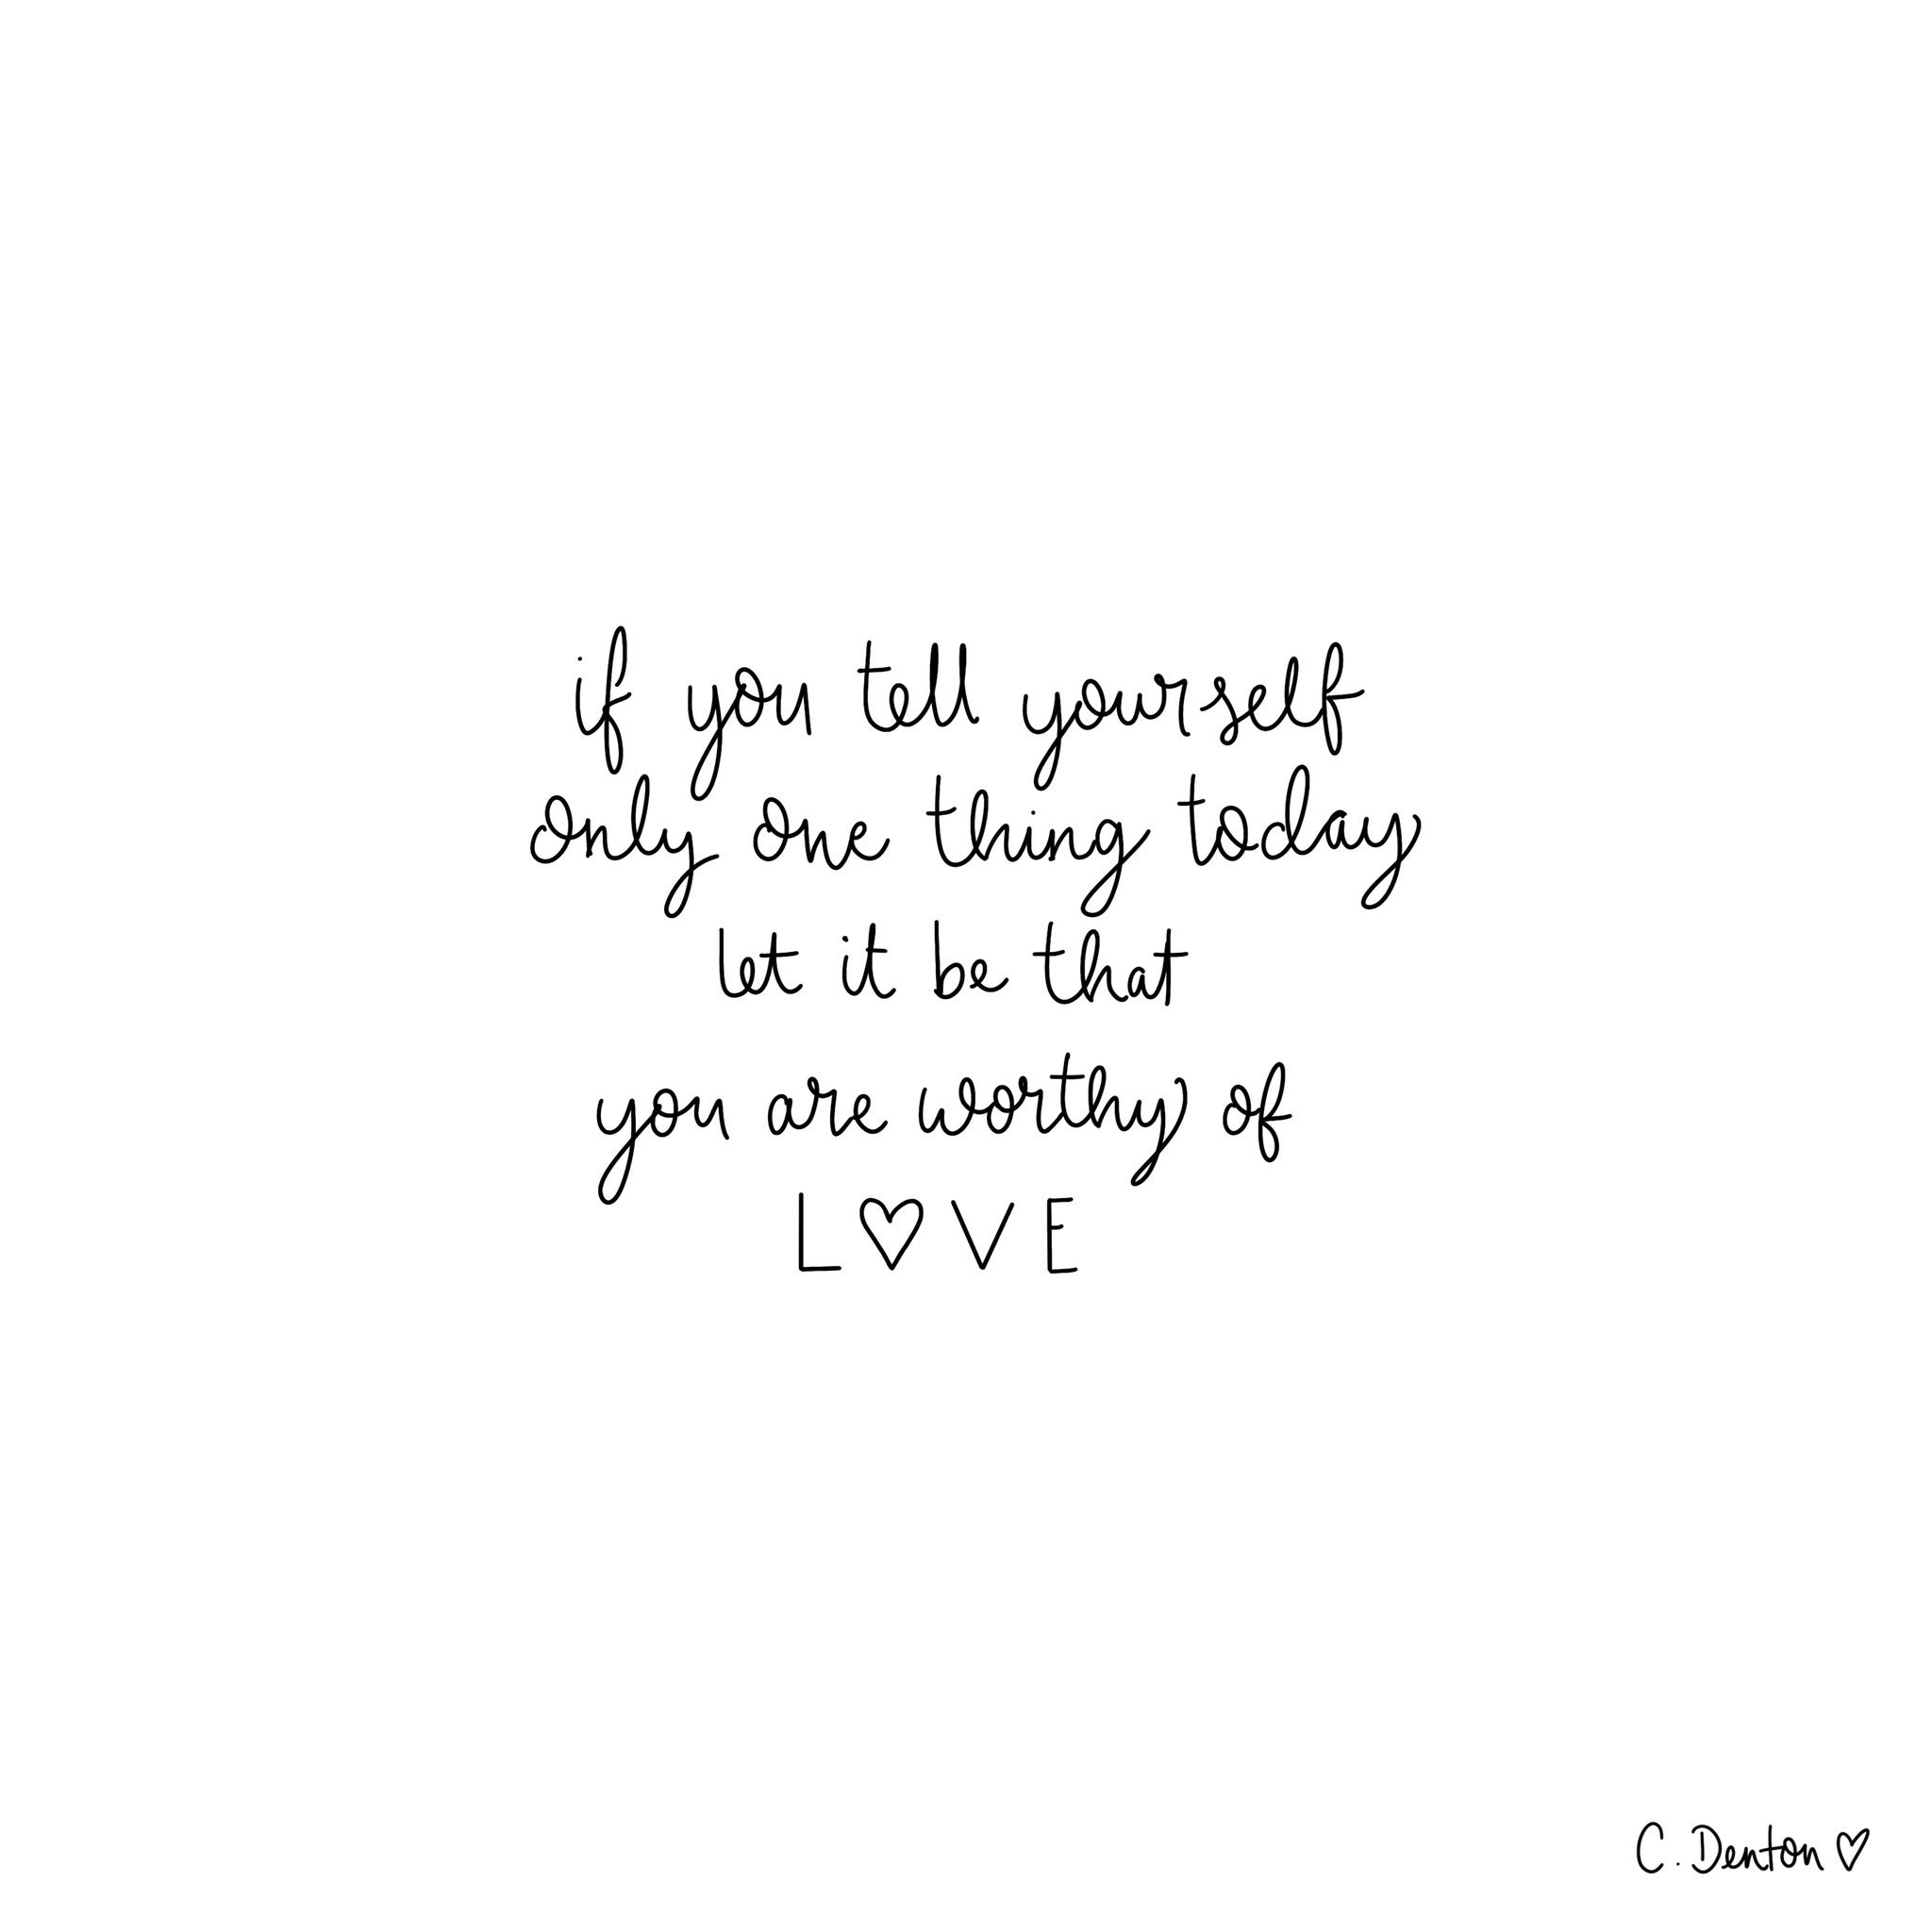 if you tell yourself
only one thing today
let it be that
you are worthy of
L♡VE
C. Denton ♡